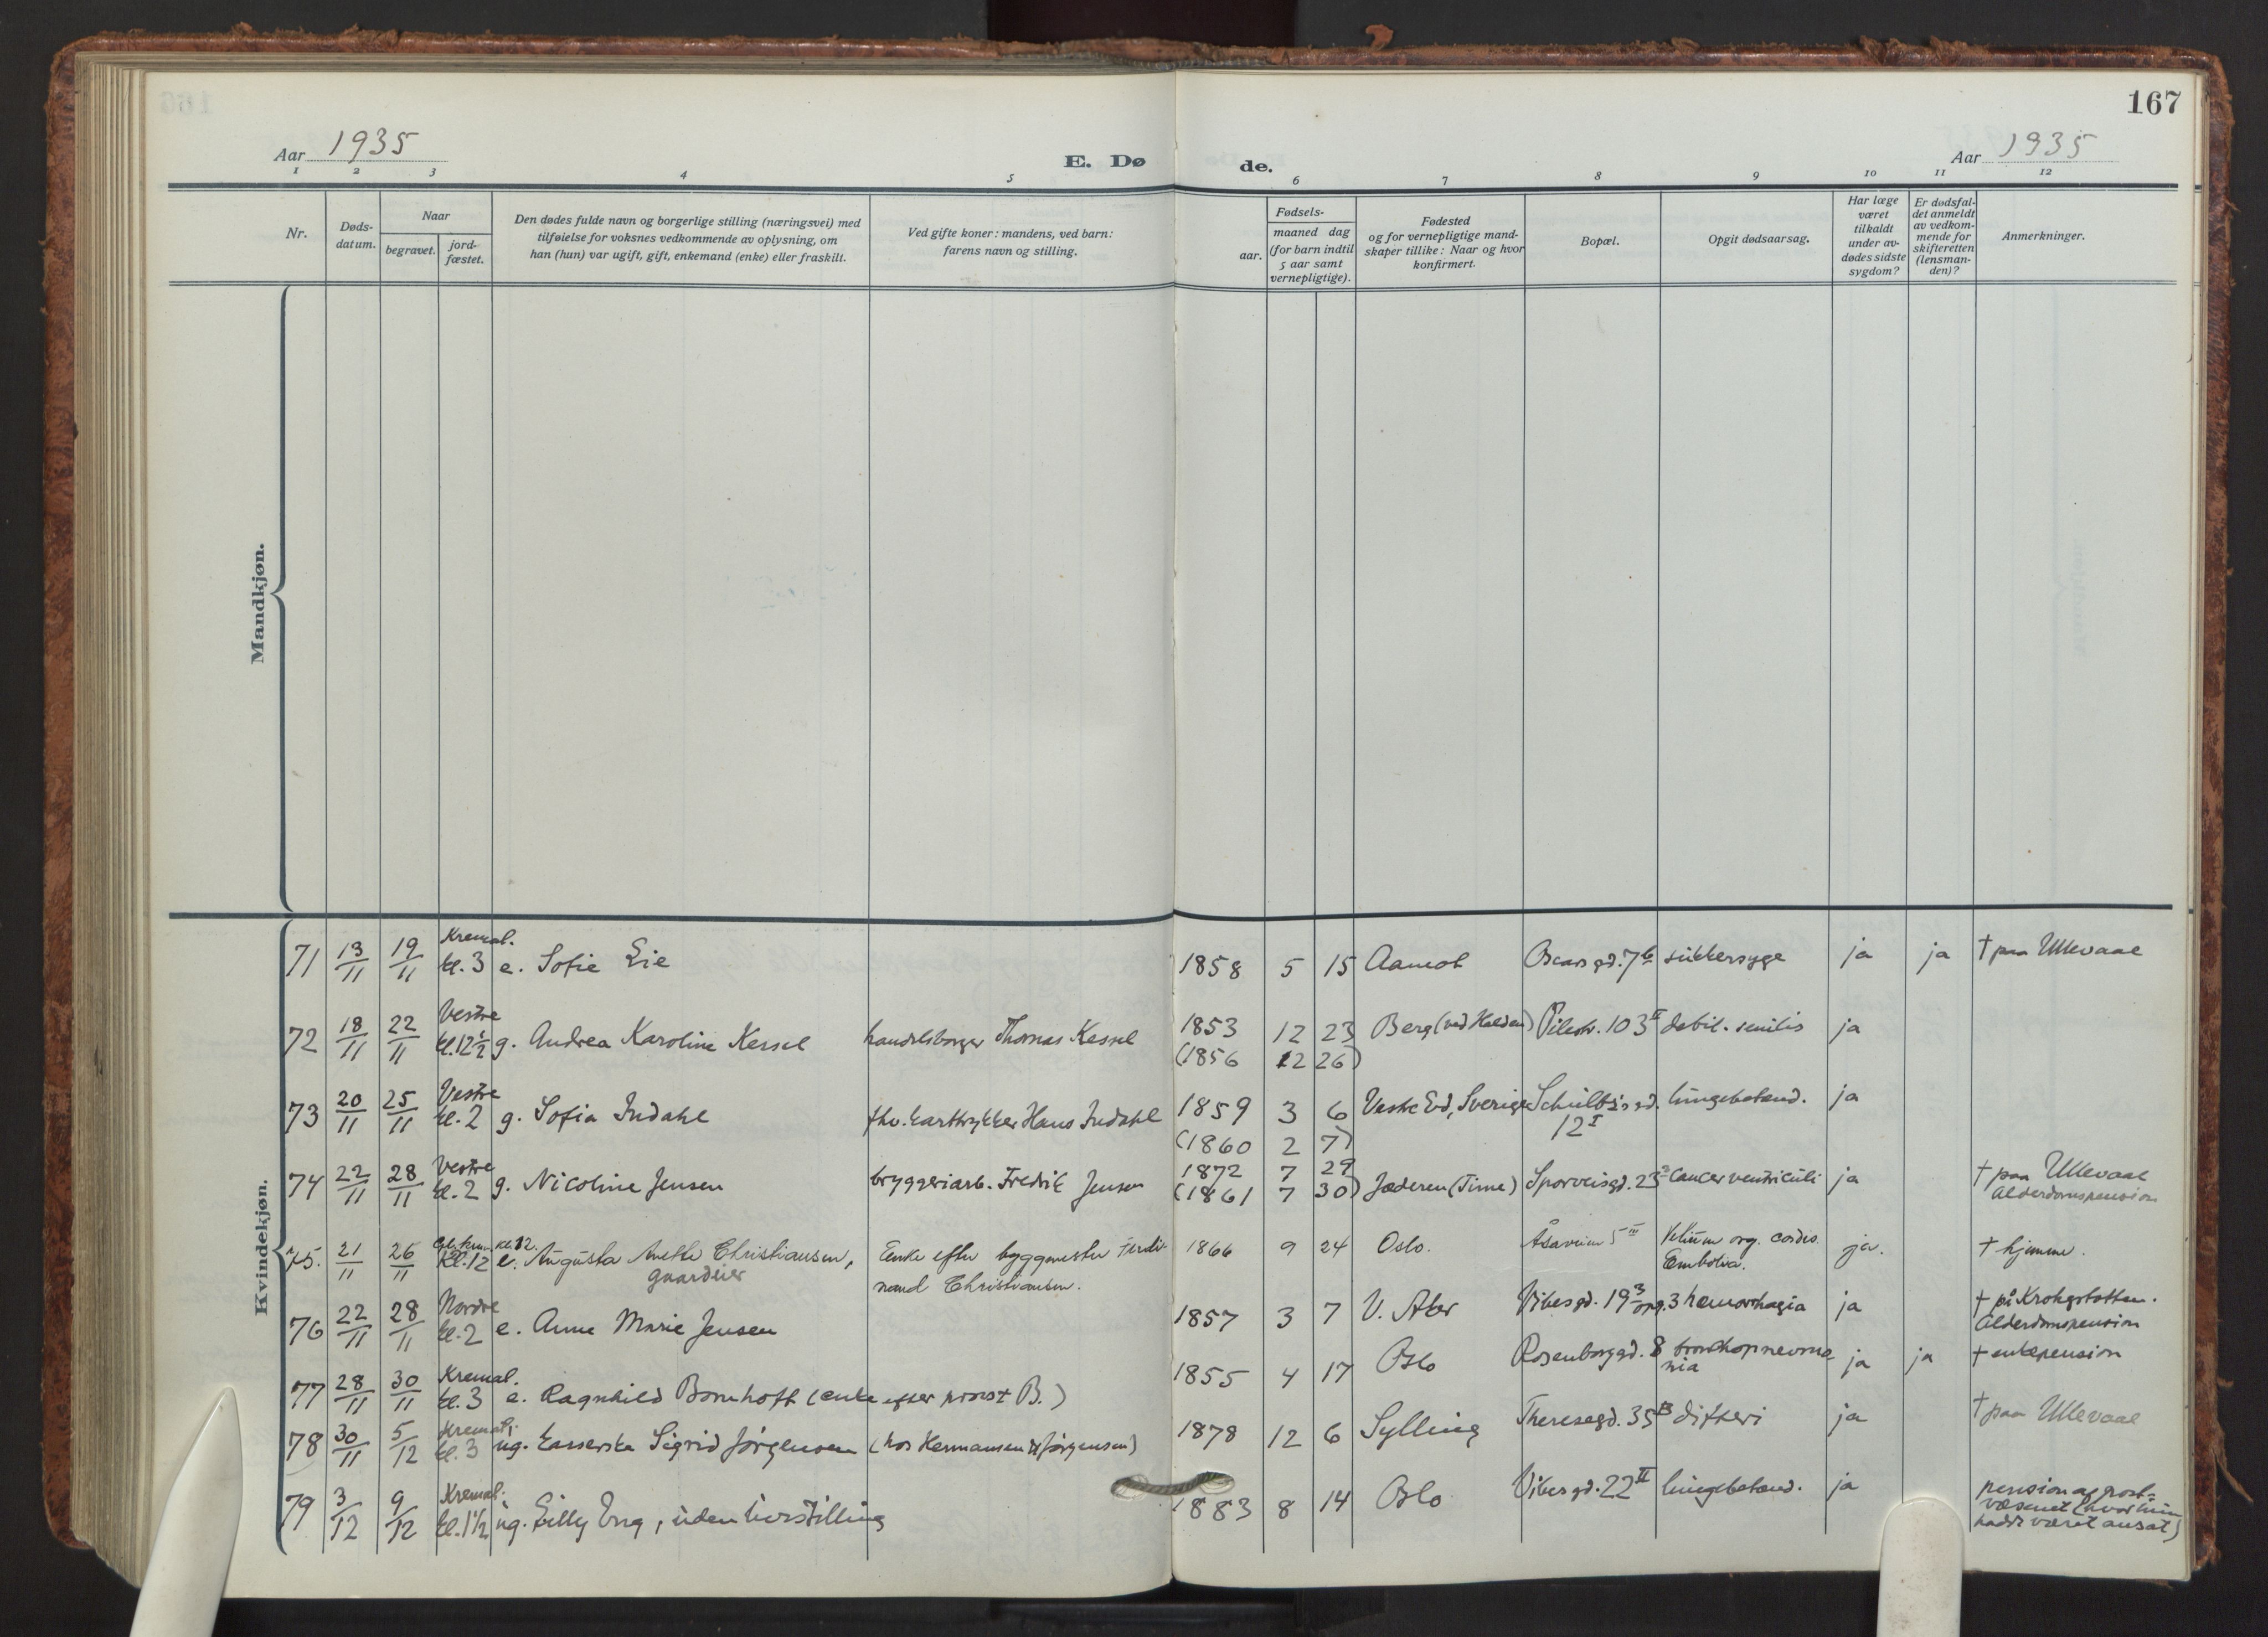 167
Aar 1935
E. Dø de.
Aar 1935
1 2 3 4 5 6 7 8 9 10 11 12
Nr.
Døds-
datum.
Naar
begravet.
jord-
fæstet.
Den dødes fulde navn og borgerlige stilling (næringsvei) med
tilføielse for voksnes vedkommende av oplysning, om
han (hun) var ugift, gift, enkemand (enke) eller fraskilt.
Ved gifte koner: mandens, ved barn:
farens navn og stilling.
Fødsels-
aar.
maaned dag
(for barn indtil
5 aar samt
vernepligtige).
Fødested
og for vernepligtige mand-
skaper tillike: Naar og hvor
konfirmert.
Bopæl.
Opgit dødsaarsag.
Har læge
været
tilkaldt
under av-
dødes sidste
sygdom?
Er dødsfal-
det anmeldt
av vedkom-
mende for
skifteretten
(lensman-
den)?
Anmerkninger.
Mandkjøn.
Kvindekjøn.
71 13/11 19/11 Kremat. kl. 3 e. Sofie Lie 1858 5 15 Aamot Oscarsgd. 76 sukkersyge ja ja † paa Ullevaal
72 18/11 22/11 Vestre kl. 12½ g. Andrea Karoline Kessel handelsborger Thomas Kessel 1853 12 23 Berg (ved Halden) Pilestr. 103 II debil. senilis ja
(1856 12 26)
73 20/11 25/11 Vestre kl. 2 g. Sofia Indahl fhv. karttrykker Hans Indahl 1859 3 6 Sverige Schultz's gd. 12 I lungebetænd. ja
(1860 2 7)
74 22/11 28/11 Vestre kl. 2 g. Nicoline Jensen bryggeriarb. Fredrik Jensen 1872 7 29 Jæderen (Time) Sporveisgd. 23 Cancer ventriculi ja † paa Ullevaal
(1861 7 30) Alderdomspension
75. 21/11 26/11 kl. 12 e. Augusta Anette Christiansen, gaardeier Enke efter byggmester Ferdi-
nand Christiansen. 1866 9 24 Oslo. Åsaveien 5 III Vitium org. cordis. Embolia. ja. † hjemme.
76 22/11 28/11 Nordre kl. 2 e. Anne Marie Jensen 1857 3 7 V. Aker Vibesgd. 19 3 opg. 3 hæmorrhagia ja † på Krohgstøtten.
Alderdomspension
77 28/11 30/11 Kremat. kl. 3 e. Ragnhild Bomhoff (enke efter provst B.) 1855 4 17 Oslo Rosenborggd. 8 bronkopnevmo-
nia ja ja † enkepension
78 30/11 5/12 Kremat. kl. 3 ug. kasserske Sigrid Jørgensen (hos Hermansen & Jørgensen) 1878 12 6 Sylling Theresegd. 35 B difteri ja † paa Ullevaal
79 3/12 9/12 Kremat. kl. 1½ ug. Lilly Eng, uden livsstilling 1883 8 14 Oslo Vibesgd. 22 II lungebetænd. ja pension av post-
væsenet (hvor hun
hadde været ansat)